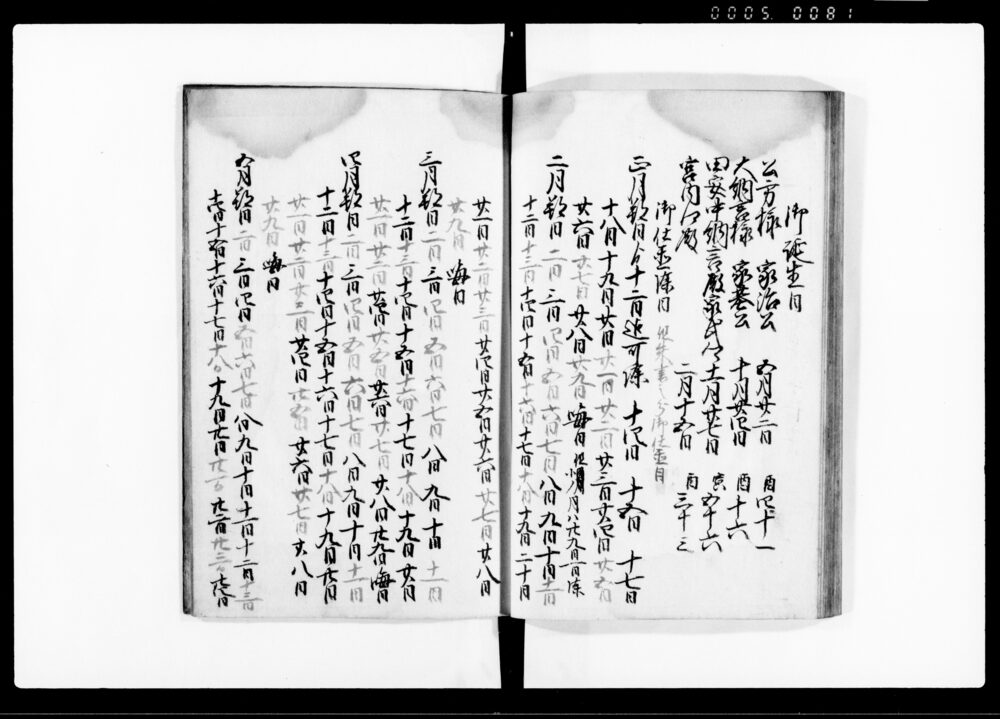 0005 0081
御誕生日
公方様 家治公 五月廿二日 酉四十一
大納言様 家基公 十月廿四日 酉十六
田安中納言殿 十一月廿七日 亥五十六
宮内卿殿 二月十五日 酉三十三
御仕置除日
正月朔日ゟ十二日迄可除 十四日 十五日 十七日
十八日 十九日 廿日 廿一日 廿二日 廿三日 廿四日 廿五日
廿六日 廿七日 廿八日 廿九日 晦日
二月朔日 二日 三日 四日 五日 六日 七日 八日 九日 十日 十一日
十二日 十三日 十四日 十五日 十六日 十七日 十八日 十九日 二十日
廿一日 廿二日 廿三日 廿四日 廿五日 廿六日 廿七日 廿八日
廿九日 晦日
三月朔日 二日 三日 四日 五日 六日 七日 八日 九日 十日 十一日
十二日 十三日 十四日 十五日 十六日 十七日 十八日 十九日 廿日
廿一日 廿二日 廿三日 廿四日 廿五日 廿六日 廿七日 廿八日 廿九日 晦日
四月朔日 二日 三日 四日 五日 六日 七日 八日 九日 十日 十一日
十二日 十三日 十四日 十五日 十六日 十七日 十八日 十九日 廿日
廿一日 廿二日 廿三日 廿四日 廿五日 廿六日 廿七日 廿八日
廿九日 晦日
五月朔日 二日 三日 四日 五日 六日 七日 八日 九日 十日 十一日 十二日 十三日
十四日 十五日 十六日 十七日 十八日 十九日 廿日 廿一日 廿二日 廿三日 廿四日